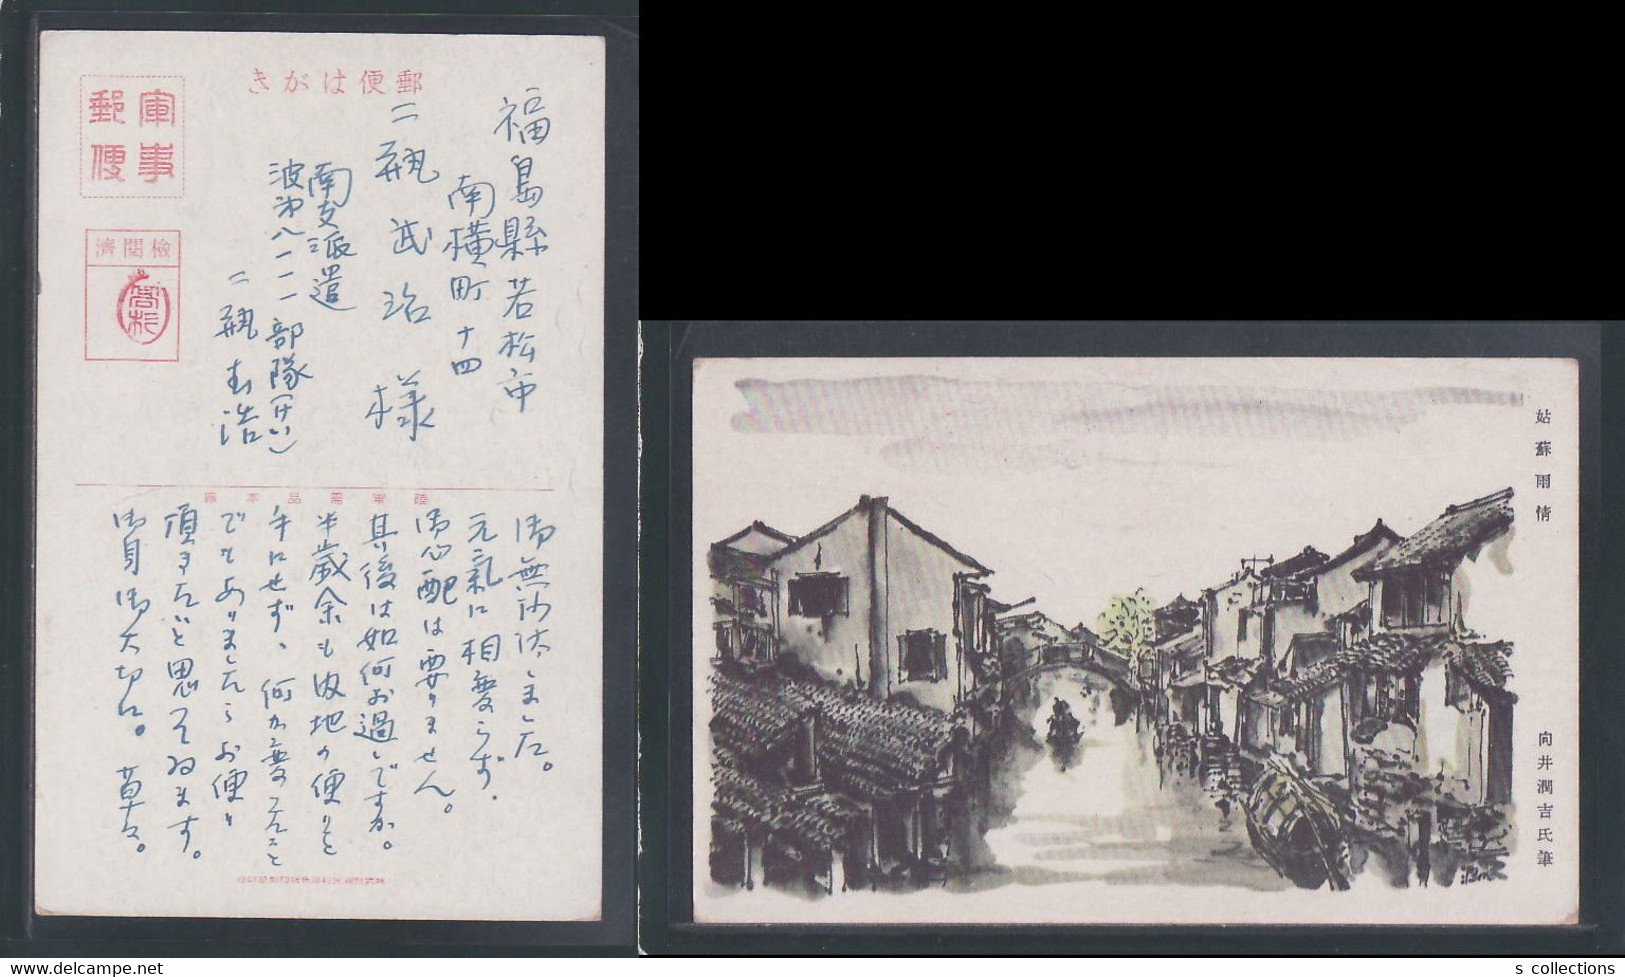 郵便はがき
軍事
郵便
檢閱濟
福島縣若松市
南横町十四
二瓶武治様
南支派遣
波第八一一一部隊(けい)
二瓶
陸軍需品本廠
御無沙汰しました。
元氣に相変らず、
御心配は要りません。
其後は如何お過しですか。
半歳余も彼地の便りを
手にせず、何か変ったこと
でもありましたらお便り
頂きたいと思って居ます。
御身御大切に。草々。
姑蘇雨情
向井潤吉氏筆
s collections